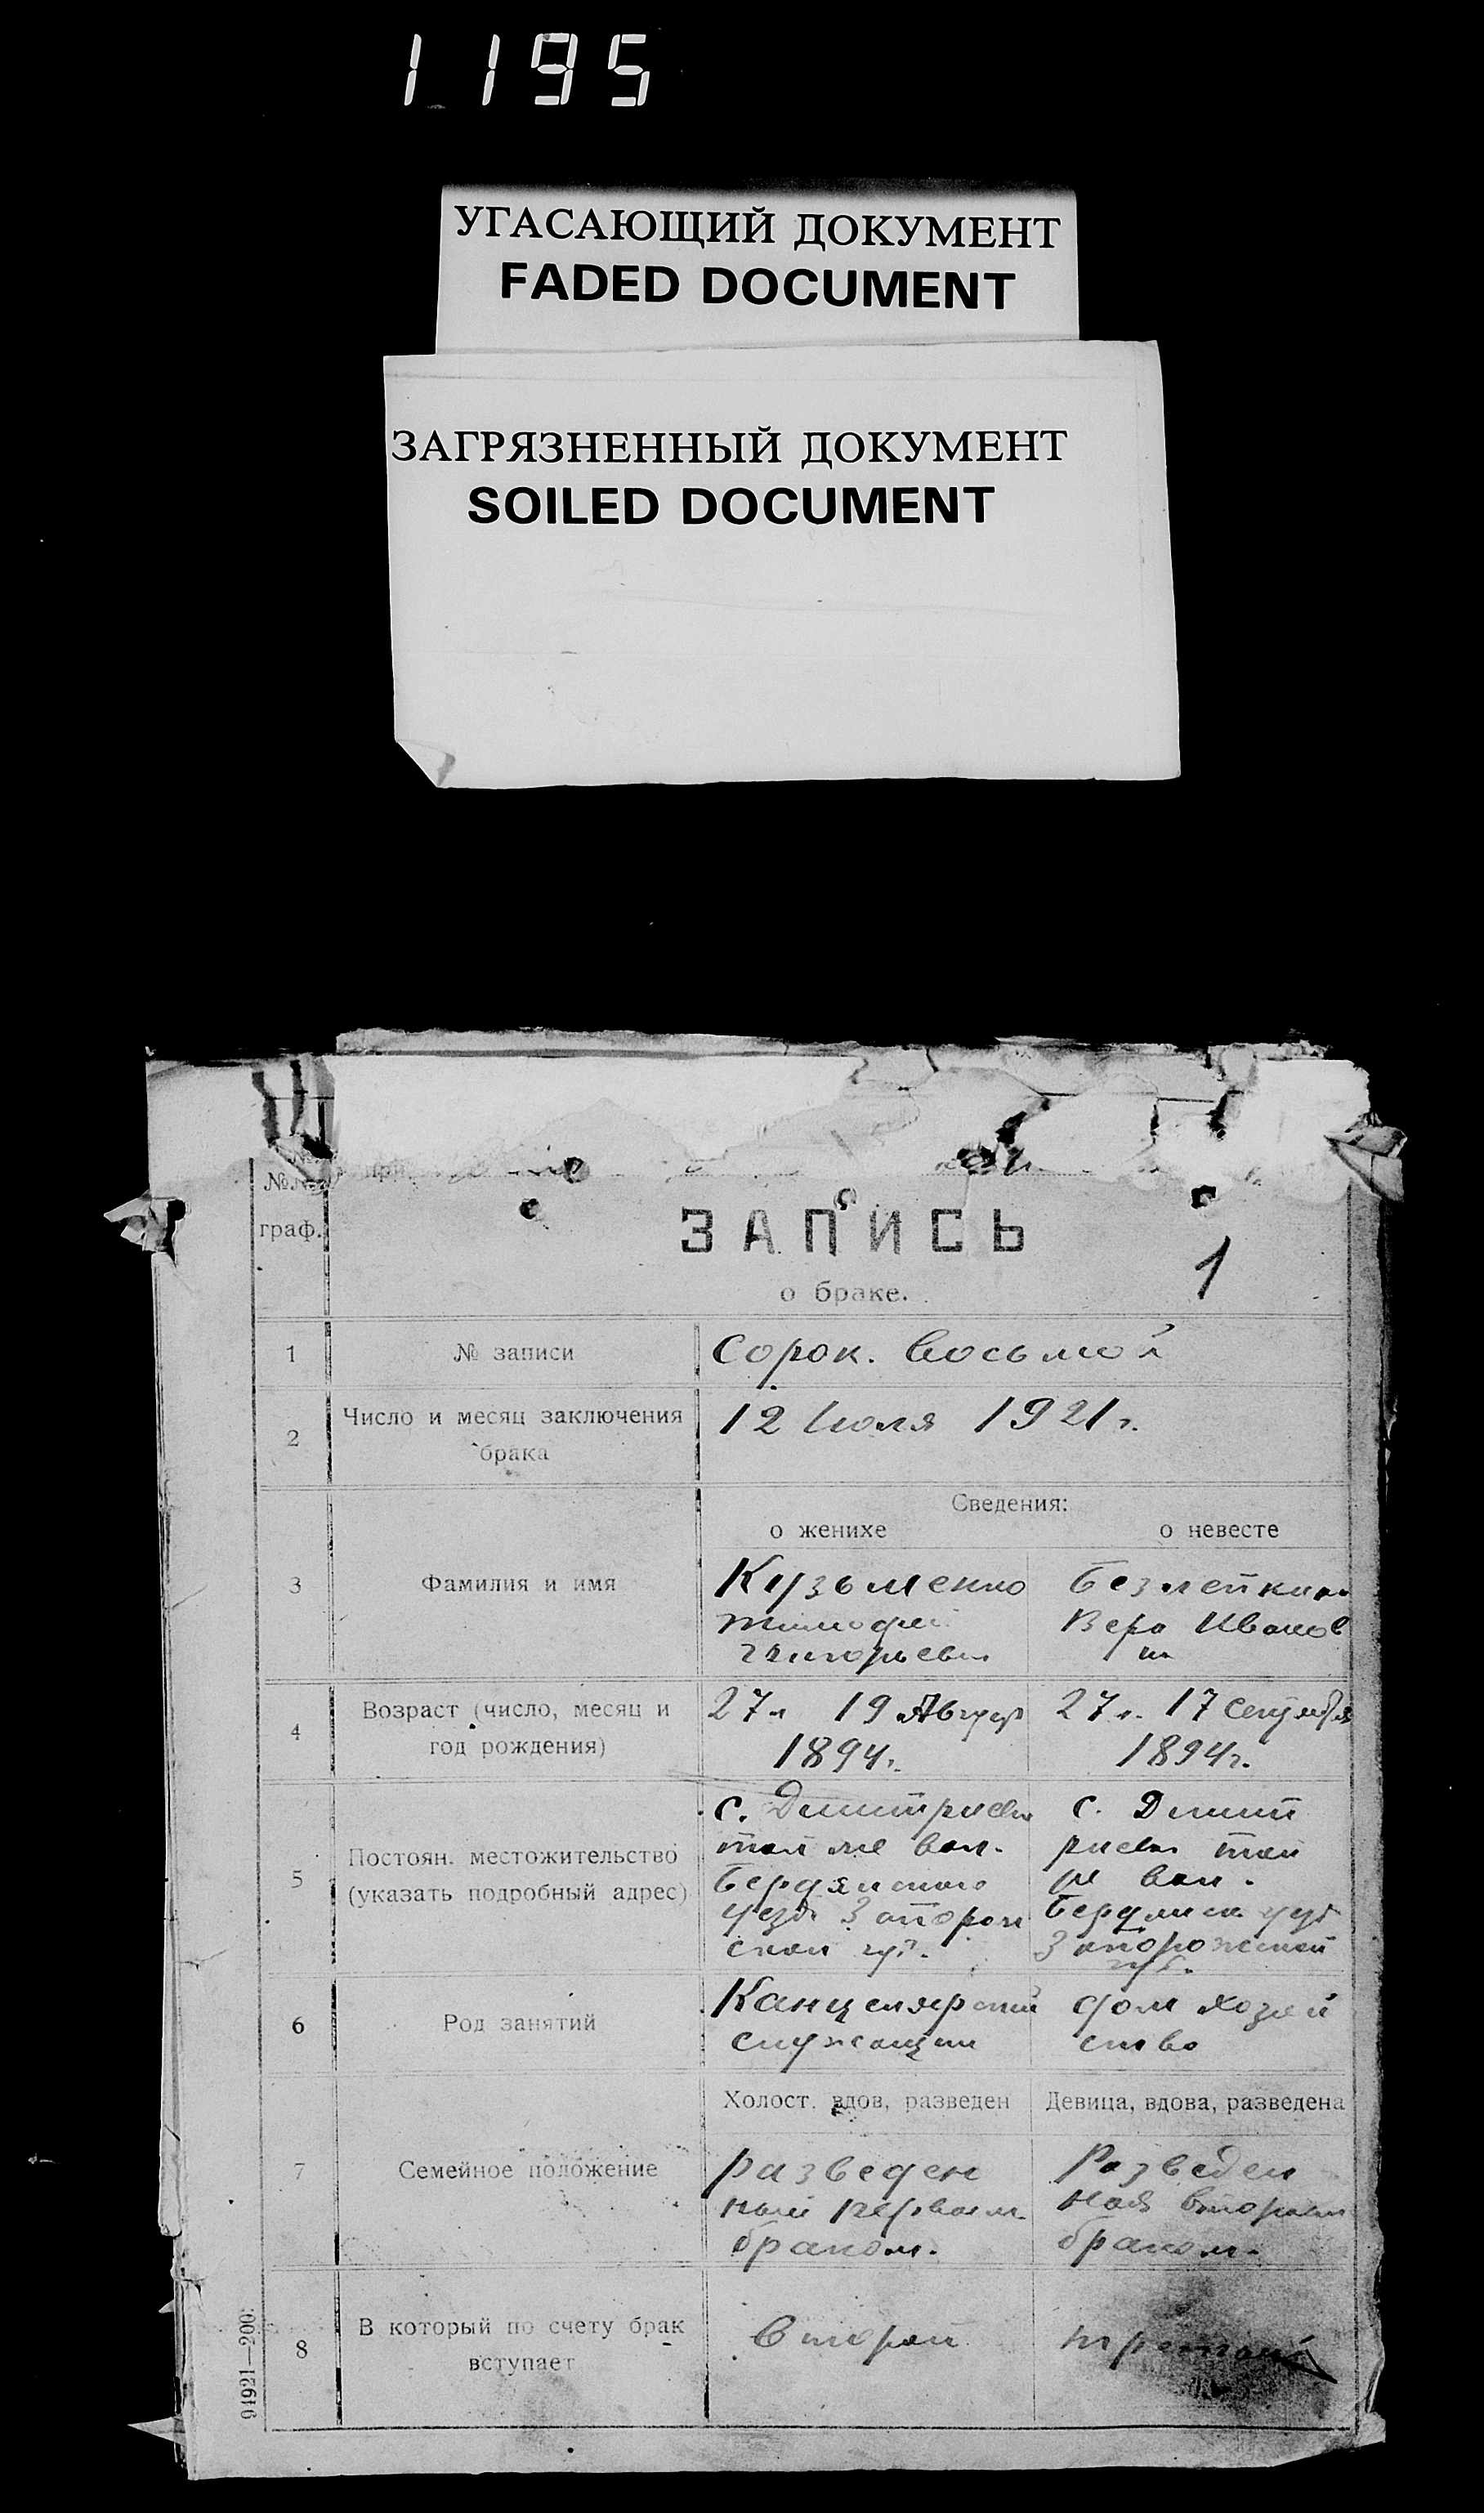 1195
УГАСАЮЩИЙ ДОКУМЕНТ
FADED DOCUMENT
ЗАГРЯЗНЕННЫЙ ДОКУМЕНТ
SOILED DOCUMENT
граф.
ЗАПИСЬ
о браке.
1
1 № записи Сорок. восьмой
2 Число и месяц заключения 12 Июля 1921 г.
брака
Сведения:
о женихе о невесте
3 Фамилия и имя Кузьменко
Тимофей Вера Иванов
Григорьевич на
4 Возраст (число, месяц и 27 л 19 Август 27 л. 17 Сентября
год рождения) 1894 г. 1894 г.
с. Дмитриевка с. Дмит
той же вол. риевка той
5 Постоян. местожительство Бердянского же вол.
(указать подробный адрес) уезда Запорож Бердянск. уезд
ской губ. Запорожской
губ.
Канцелярский дом. хозяй
6 Род занятий служащий ство
Холост, вдов, разведен Девица, вдова, разведена
7 Семейное положение разведен Разведен
ный первым ная вторым
браком. браком.
8 В который по счету брак второй третий
вступает
94921—200.